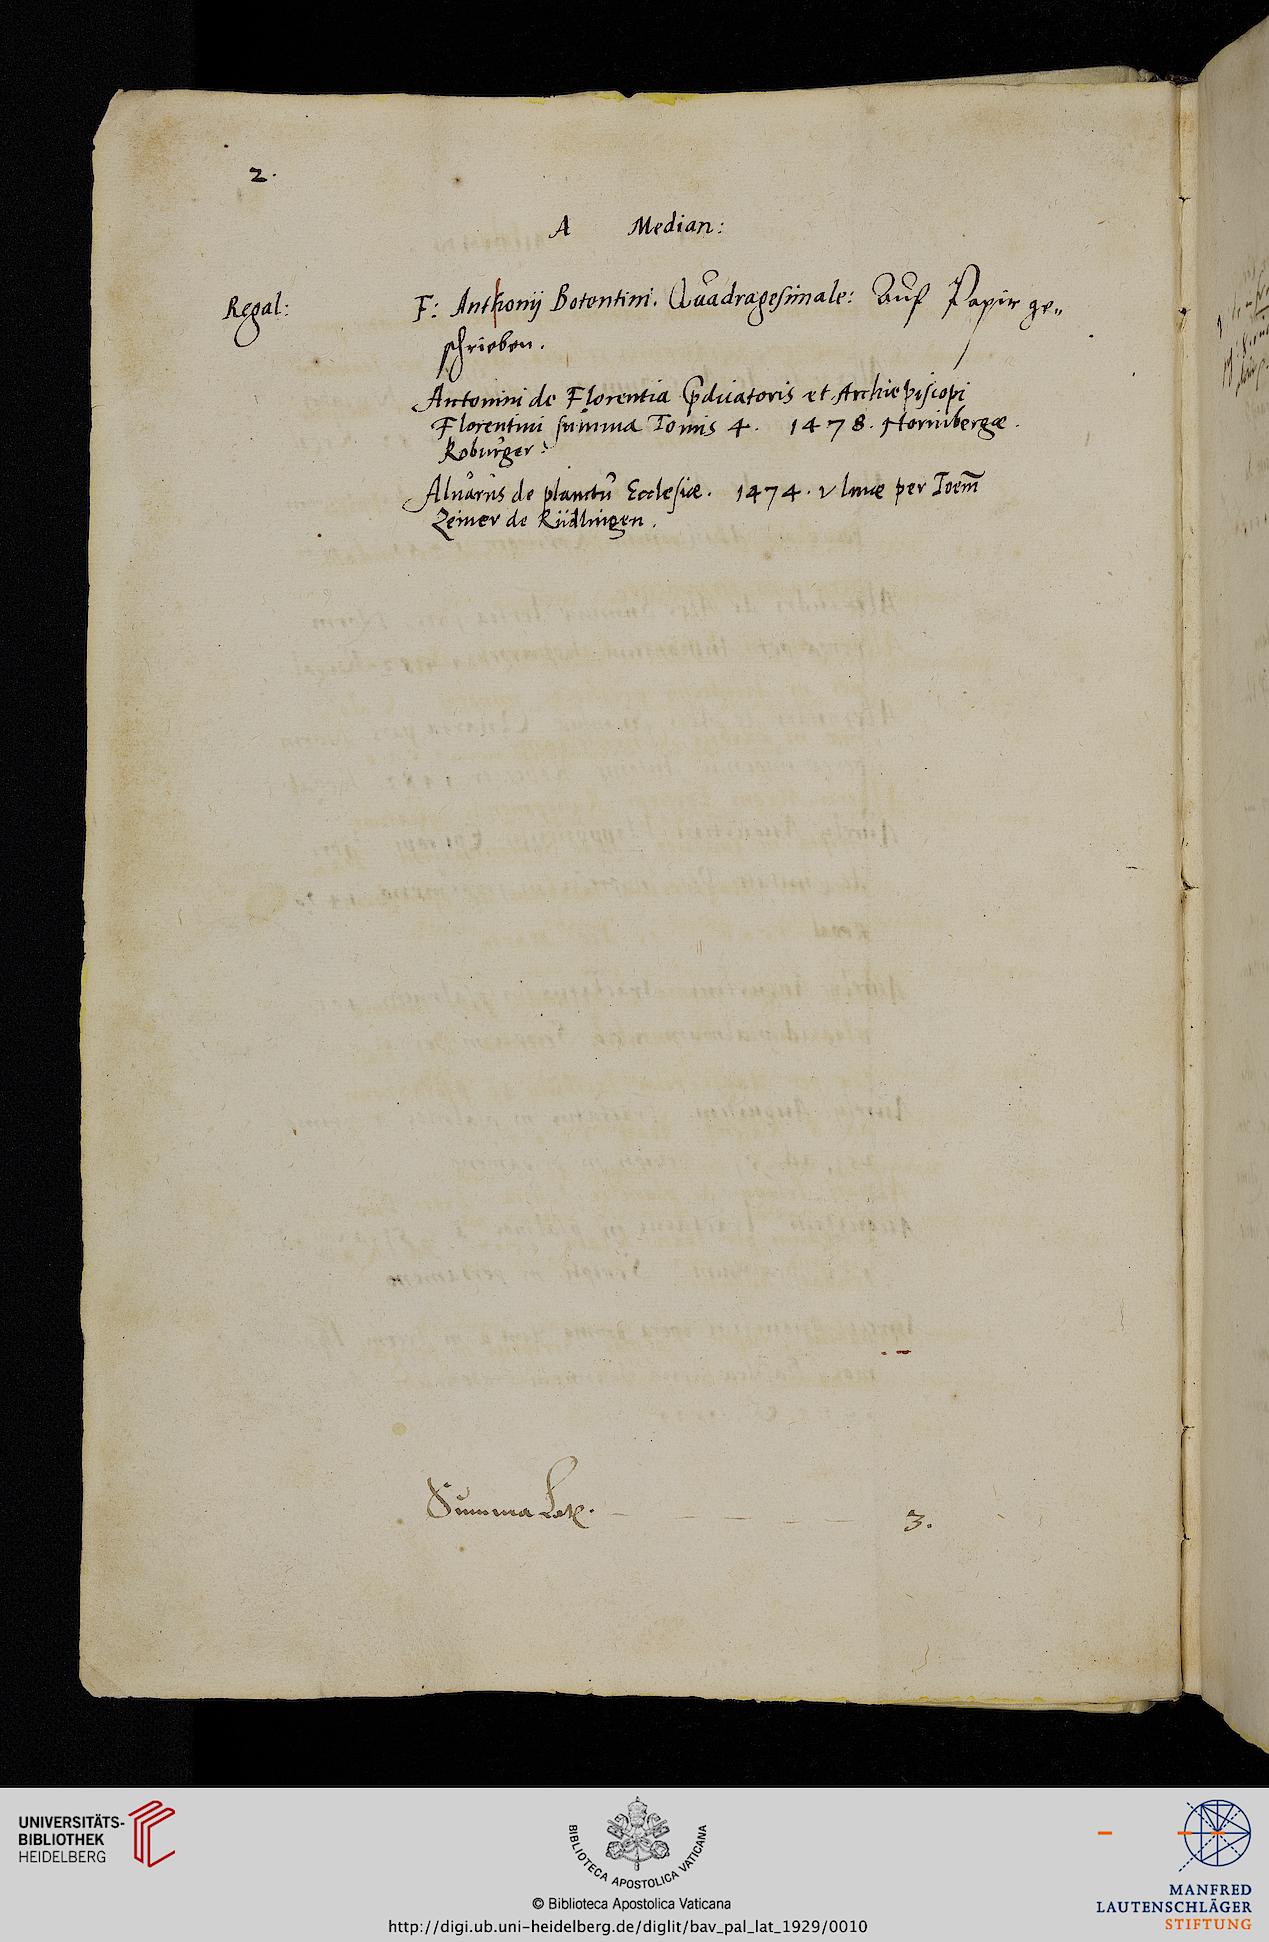 2.
A Median:
Regal: F: Anthonij Botontini. Quadragesimale: Auf Papir ge„
schrieben.
Antonini de Florentia Pdicatoris et Archiepiscopi
Florentini summa Tomis 4. 1478. Norimbergæ.
Koburger:
Aluarus de planctu Ecclesiæ. 1474. vlmæ per Joem̄
Zeiner de Rüdlingen.
Summa 3.
UNIVERSITÄTS-
BIBLIOTHEK
HEIDELBERG
BIBLIOTECA APOSTOLICA VATICANA
© Biblioteca Apostolica Vaticana
http://digi.ub.uni-heidelberg.de/diglit/bav_pal_lat_1929/0010
MANFRED
LAUTENSCHLÄGER
STIFTUNG